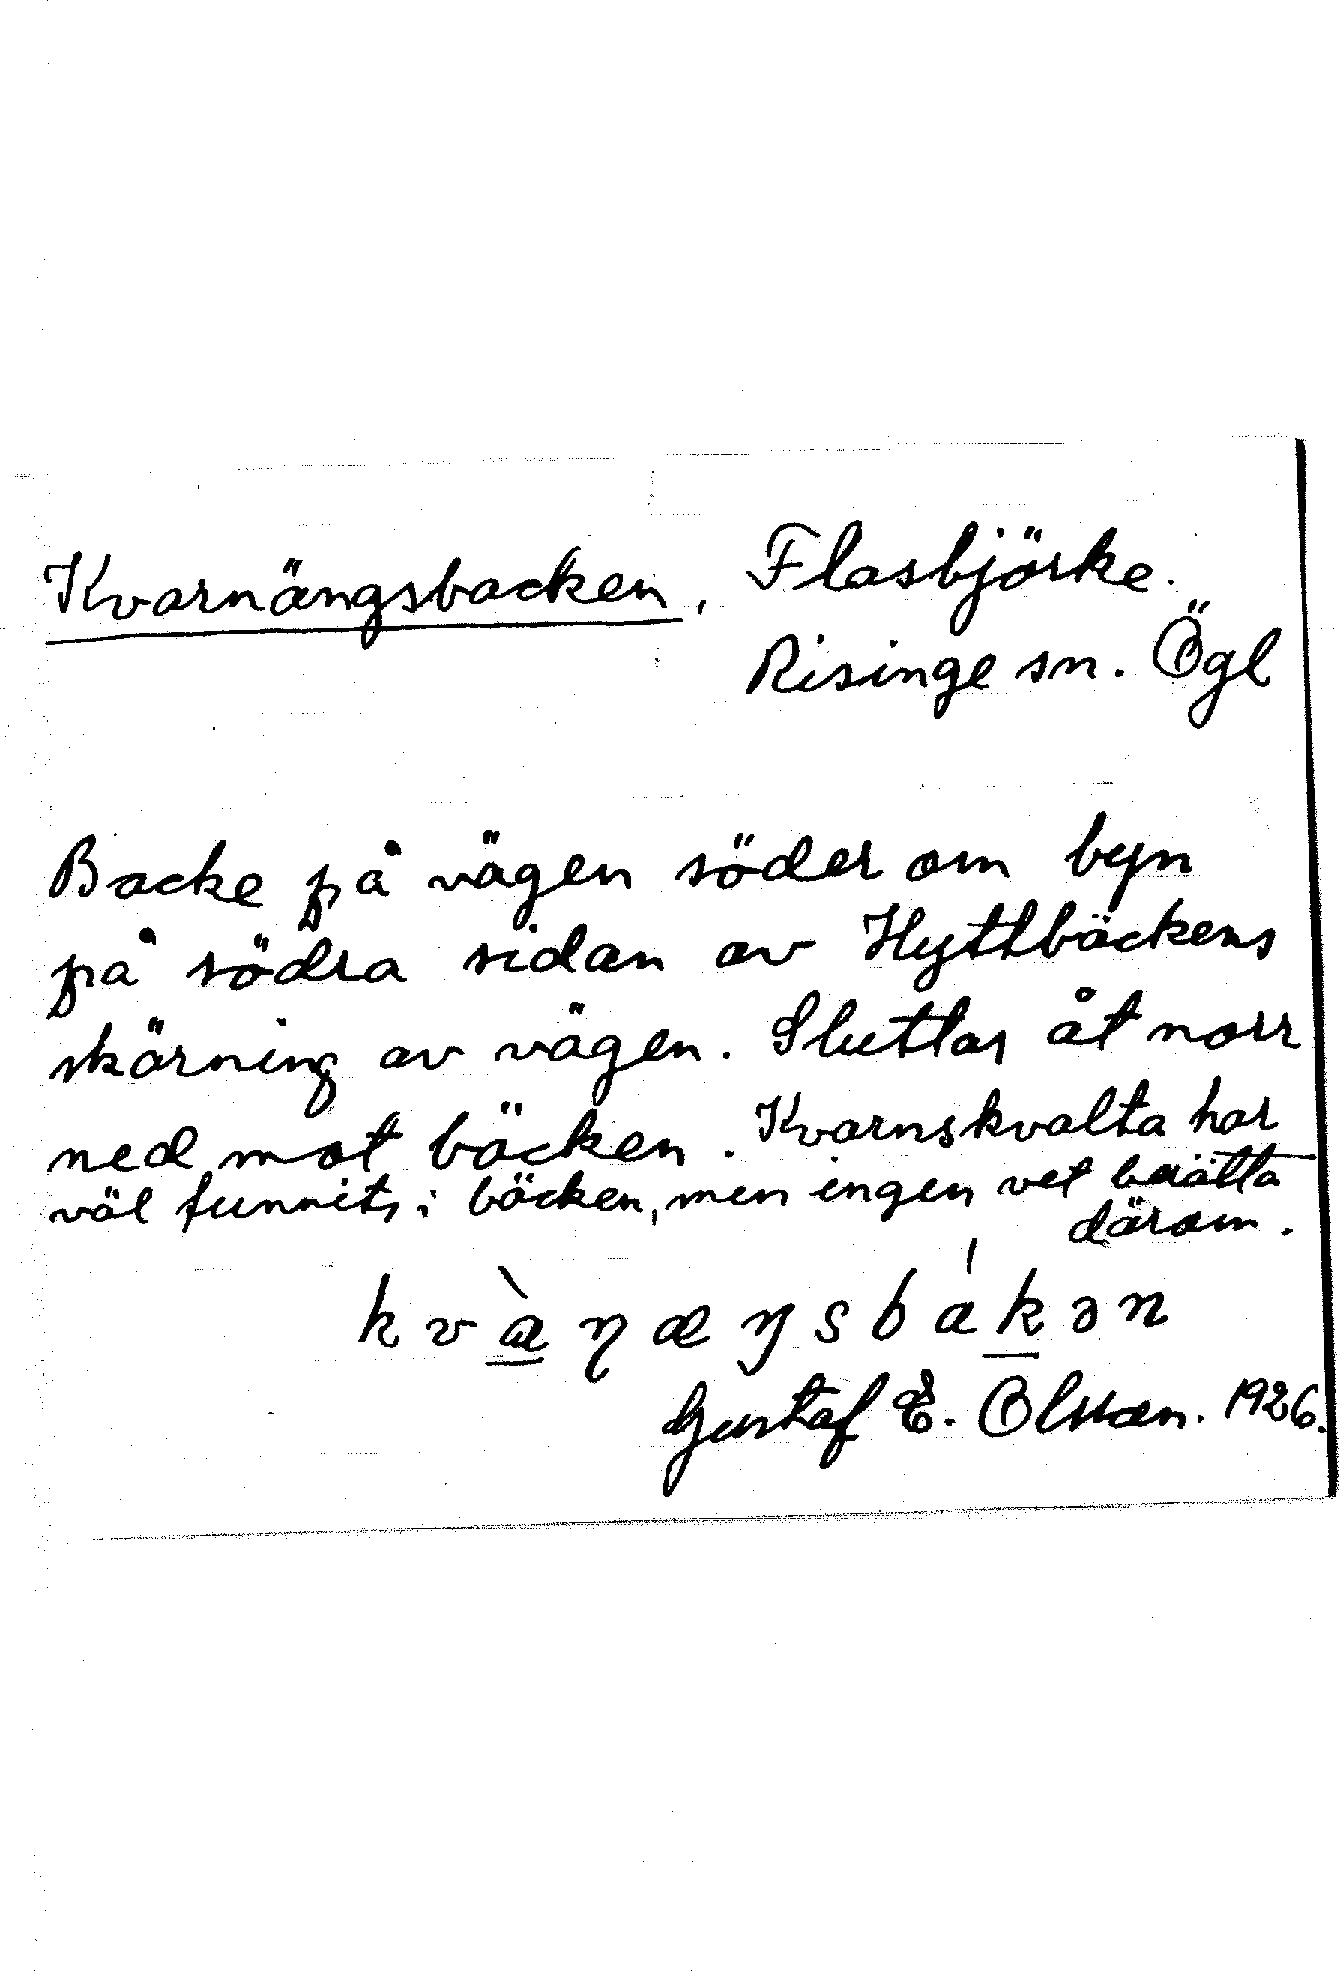 Kvarnängsbacken, Flasbjörke.
Risinge sn. Ögl
Backe på vägen söder om byn
på södra sidan av Hyttbäckens
skärning av vägen. Sluttar åt norr
ned mot bäcken. Kvarnskvalta har
väl funnits i bäcken, men ingen vet berätta
därom.
kvàɳæŋsbákən
Gustaf E. Olsson. 1926.